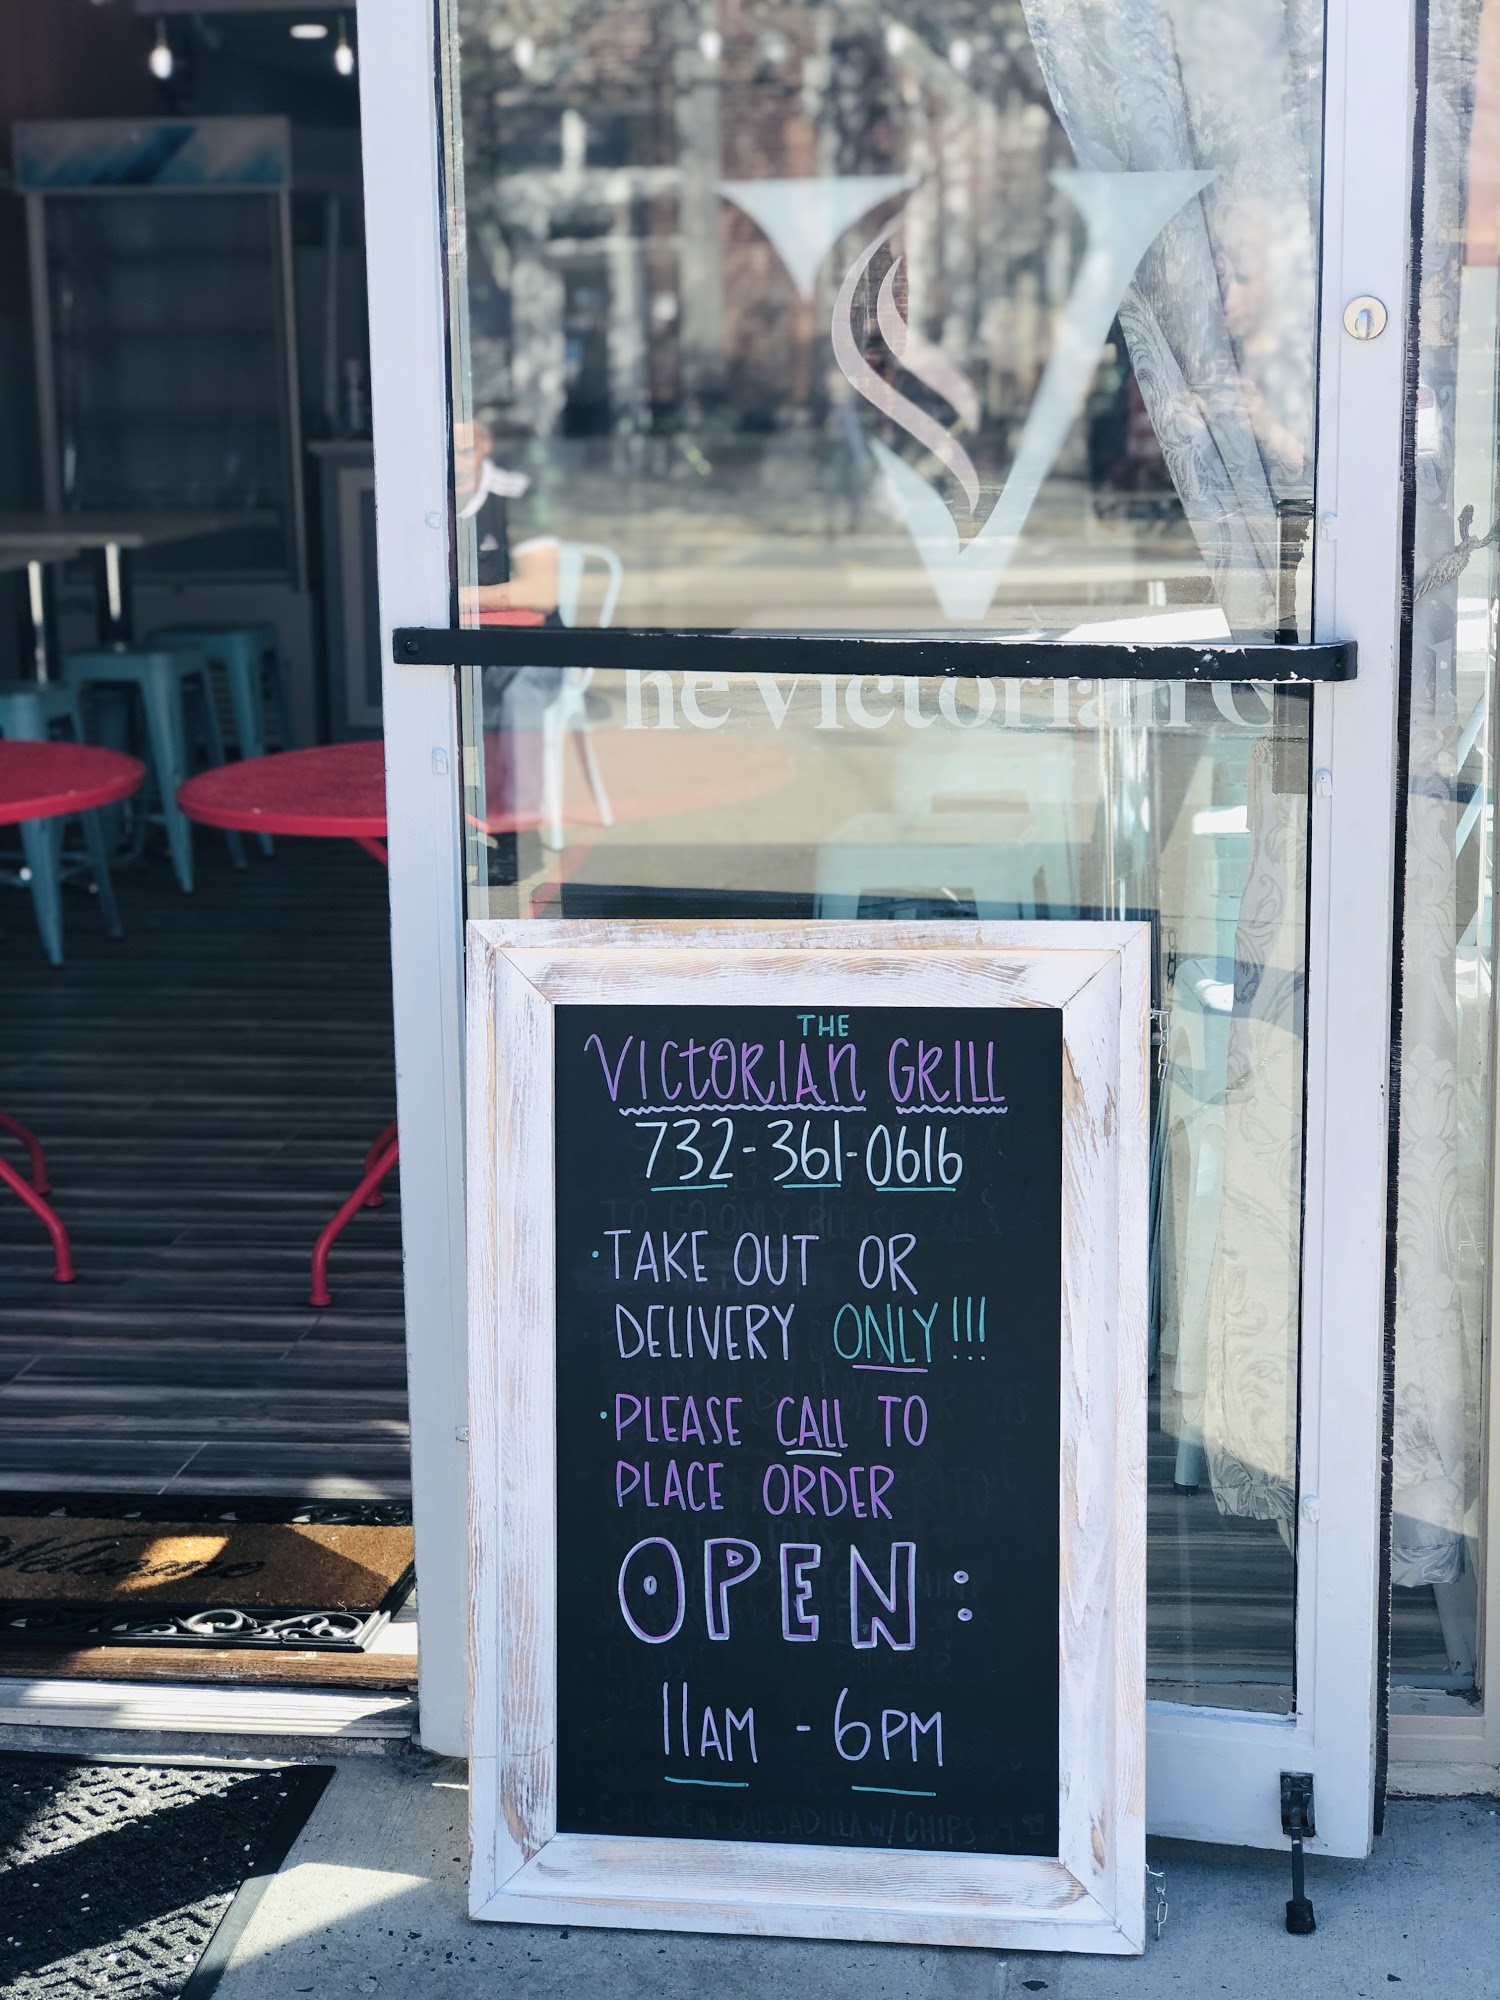 The Victorian G
THE
VICTORIAN GRILL
732-361-0616
·TAKE OUT OR
DELIVERY ONLY!!!
·PLEASE CALL TO
PLACE ORDER
OPEN:
11AM - 6PM
· CHICKEN QUESADILLA W/ CHIPS
Welcome